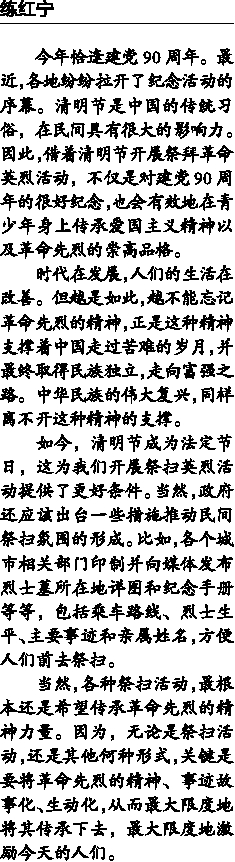 练红宁
今年恰逢建党90周年。最
近,各地纷纷拉开了纪念活动的
序幕。清明节是中国的传统习
俗，在民间具有很大的影响力。
因此,借着清明节开展祭拜革命
英烈活动，不仅是对建党90周
年的很好纪念,也会有效地在青
少年身上传承爱国主义精神以
及革命先烈的崇高品格。
时代在发展,人们的生活在
改善。但越是如此,越不能忘记
革命先烈的精神,正是这种精神
支撑着中国走过苦难的岁月,并
最终取得民族独立,走向富强之
路。中华民族的伟大复兴,同样
离不开这种精神的支撑。
如今，清明节成为法定节
日，这为我们开展祭扫英烈活
动提供了更好条件。当然,政府
还应该出台一些措施推动民间
祭扫氛围的形成。比如,各个城
市相关部门印制并向媒体发布
烈士墓所在地详图和纪念手册
等等，包括乘车路线、烈士生
平、主要事迹和亲属姓名,方便
人们前去祭扫。
当然,各种祭扫活动,最根
本还是希望传承革命先烈的精
神力量。因为，无论是祭扫活
动,还是其他何种形式,关键是
要将革命先烈的精神、事迹故
事化、生动化,从而最大限度地
将其传承下去，最大限度地激
励今天的人们。